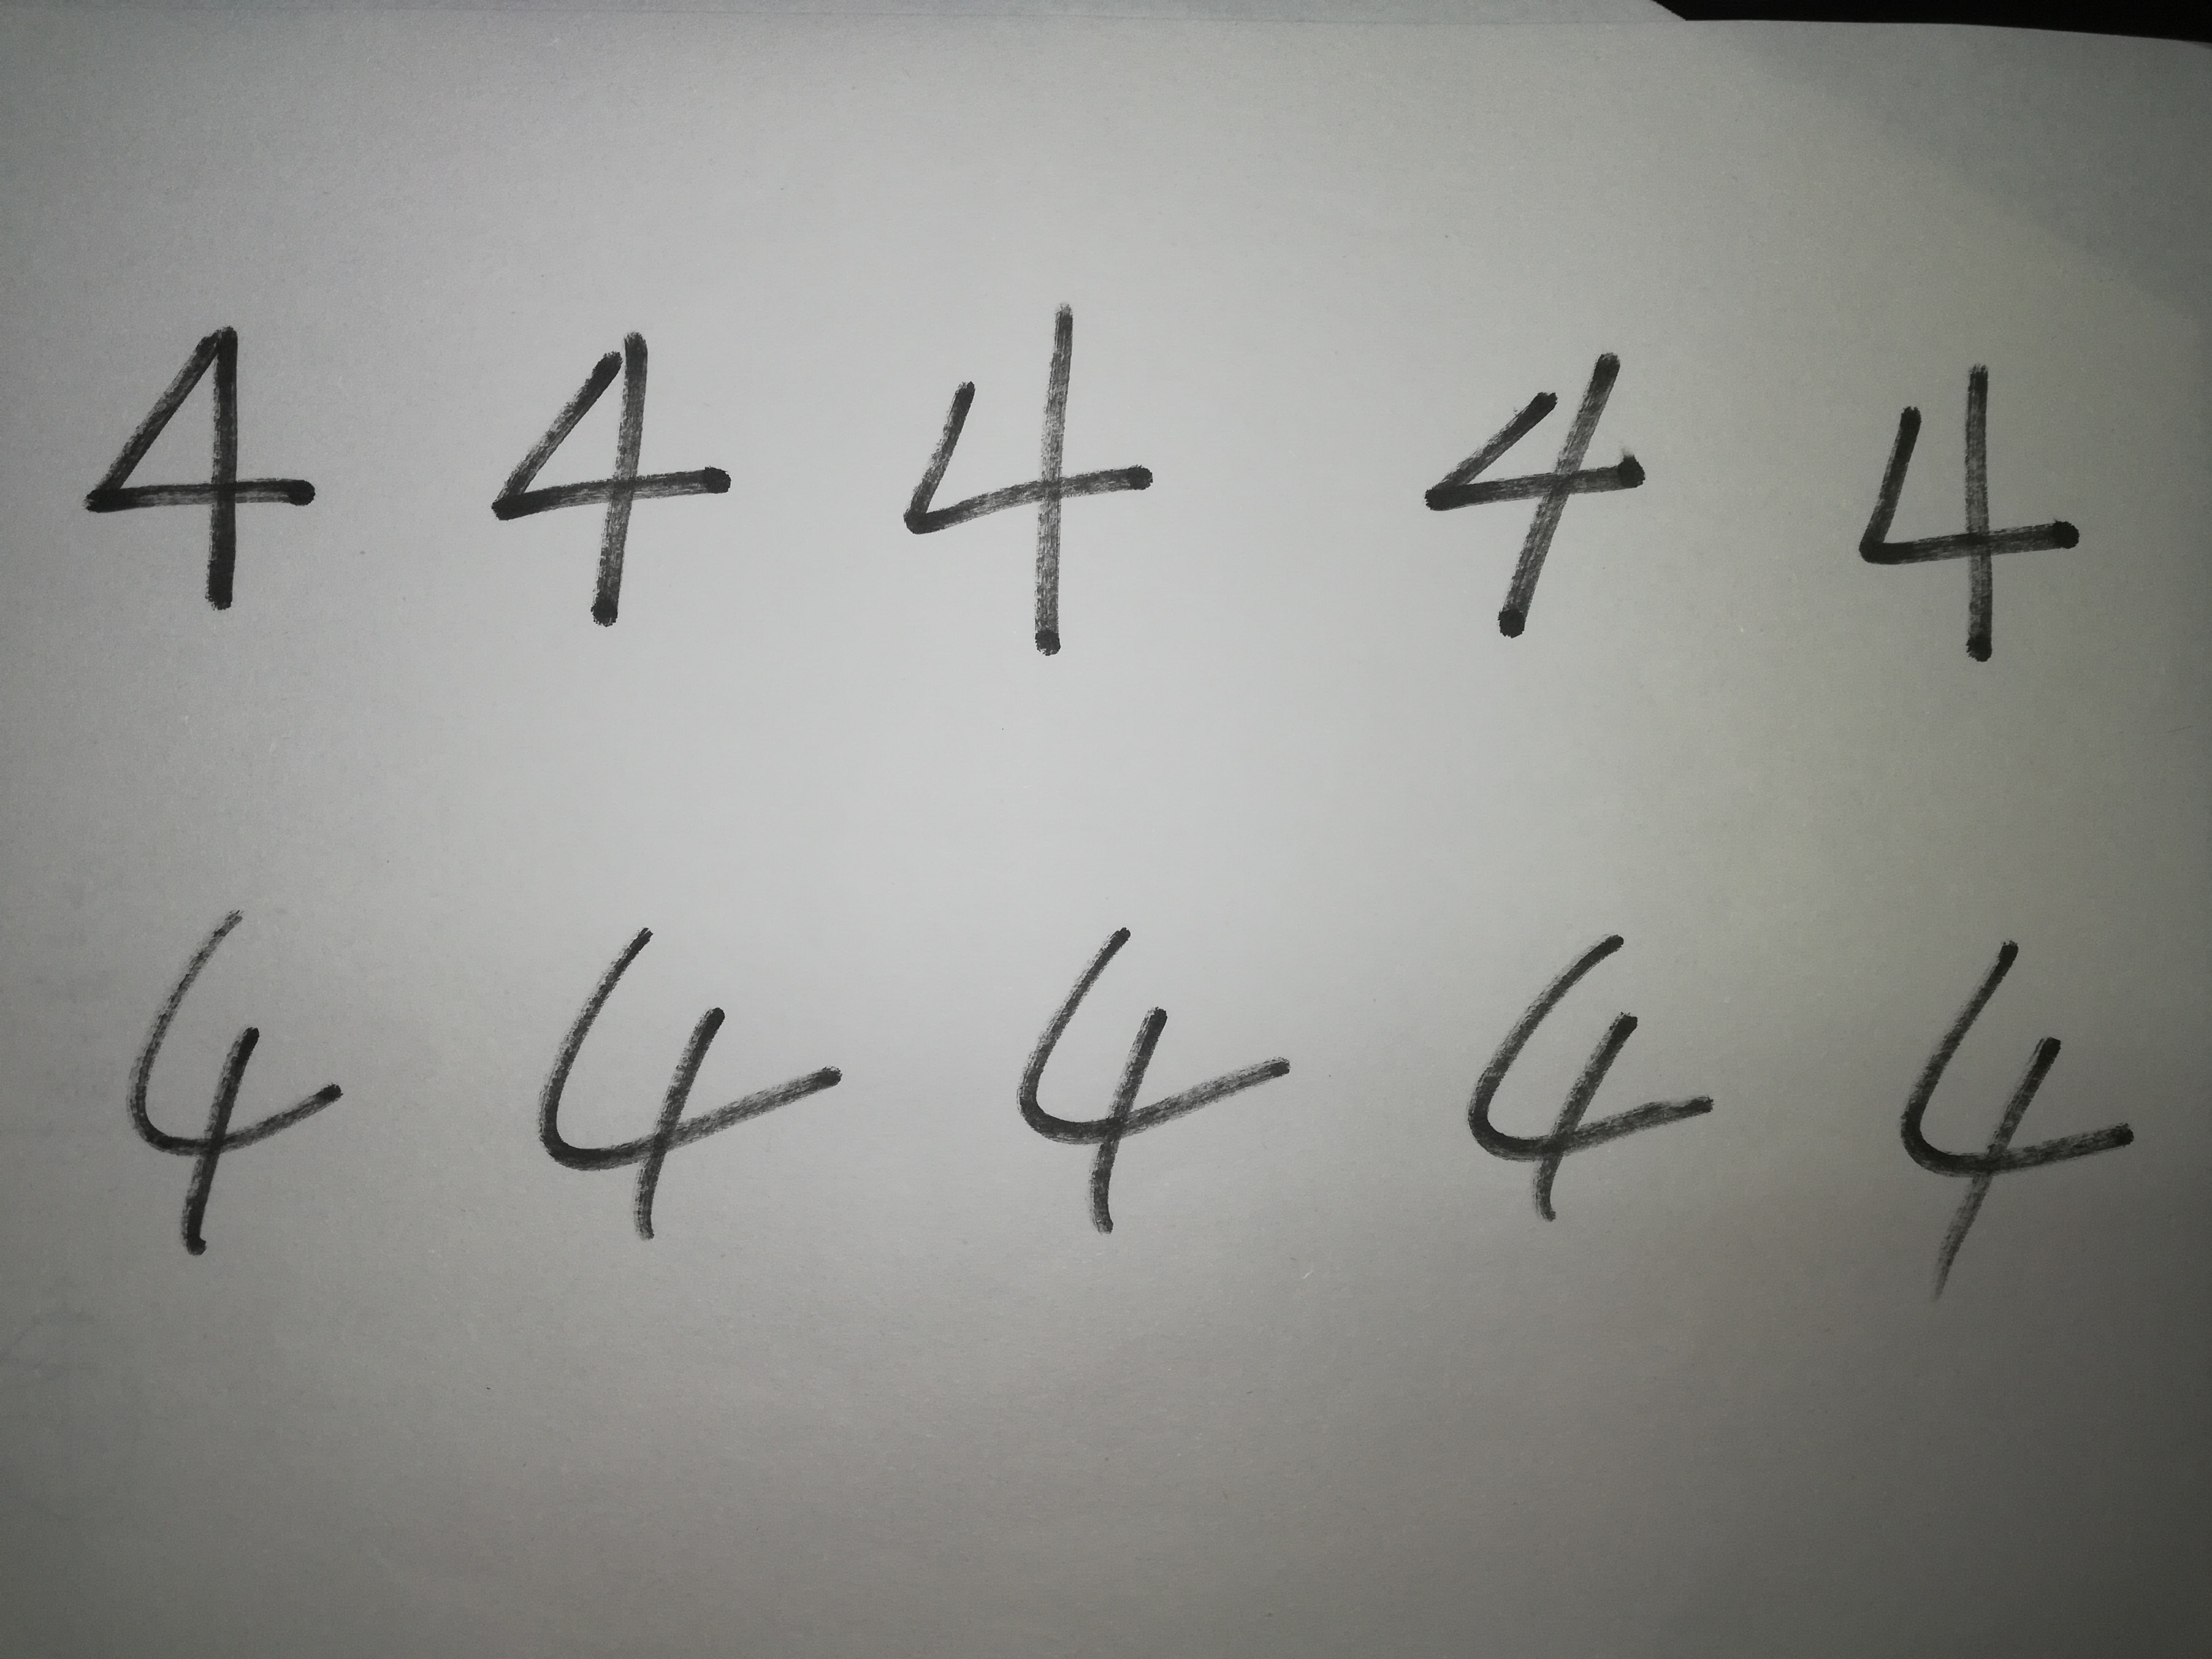 4 4 4 4 4
4 4 4 4 4